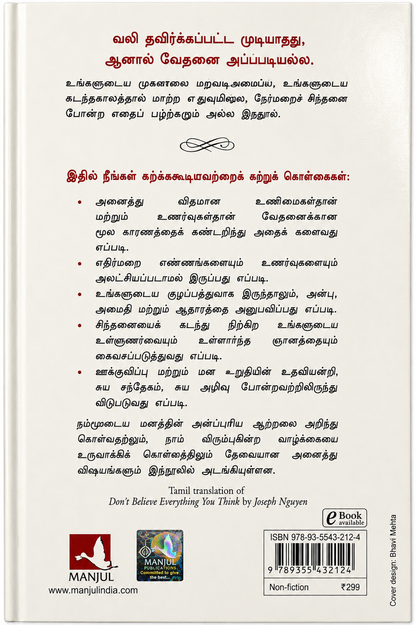 வலி தவிர்க்கப்பட்ட முடியாதது,
ஆனால் வேதனை அப்ப்படியல்ல.
உங்களுடைய முகனாலை மறவடிஅமைபல, உங்களுடைய
கடந்தகாலத்தால் மாற்ற எதுவுமிலல, நேர்மறைச் சிந்தனை
போன்ற எதைப் பழ்ற்கறும் அல்ல இநதூல்.
இதில் நீங்கள் கற்க்ககூடியவற்றைக் கற்றுக் கொள்கைகள்:
• அனைத்து விதமான உணிமைகள்தான்
மற்றும் உணர்வுகள்தான் வேதனைக்கான
மூல காரணத்தைக் கண்டறிந்து அதைக் களைவது
எப்படி.
• எதிர்மறை எண்ணங்களையும் உணர்வுகளையும்
அலட்சியப்படாமல் இருப்பது எப்படி.
• உங்களுடைய குழப்பத்துவாக இருந்தாலும், அன்பு,
அமைதி மற்றும் ஆதாரத்தை அனுபவிப்பது எப்படி.
• சிந்தனையைக் கடந்து நிற்கிற உங்களுடைய
உள்ளுணர்வையும் உள்ளார்ந்த ஞானத்தையும்
கைவசப்படுத்துவது எப்படி.
• ஊக்குவிப்பு மற்றும் மன உறுதியின் உதவியன்றி,
சுய சந்தேகம், சுய அழிவு போன்றவற்றிலிருந்து
விடுபடுவது எப்படி.
நம்மூடைய மனத்தின் அன்ப்புரிய ஆற்றலை அறிந்து
கொள்வதற்லும், நாம் விரும்புகின்ற வாழ்க்கையை
உருவாக்கிக் கொள்ளத்திலும் தேவையான அனைத்து
விஷயங்களும் இந்நூலில் அடங்கியுள்ளன.
Tamil translation of
Don't Believe Everything You Think by Joseph Nguyen
e Book
available
MANJUL
www.manjulindia.com
MANJUL
PUBLICATIONS
Committed to give
the best...
ISBN 978-93-5543-212-4
9 789355 432124
Non-fiction ₹299
Cover design: Bhavi Mehta